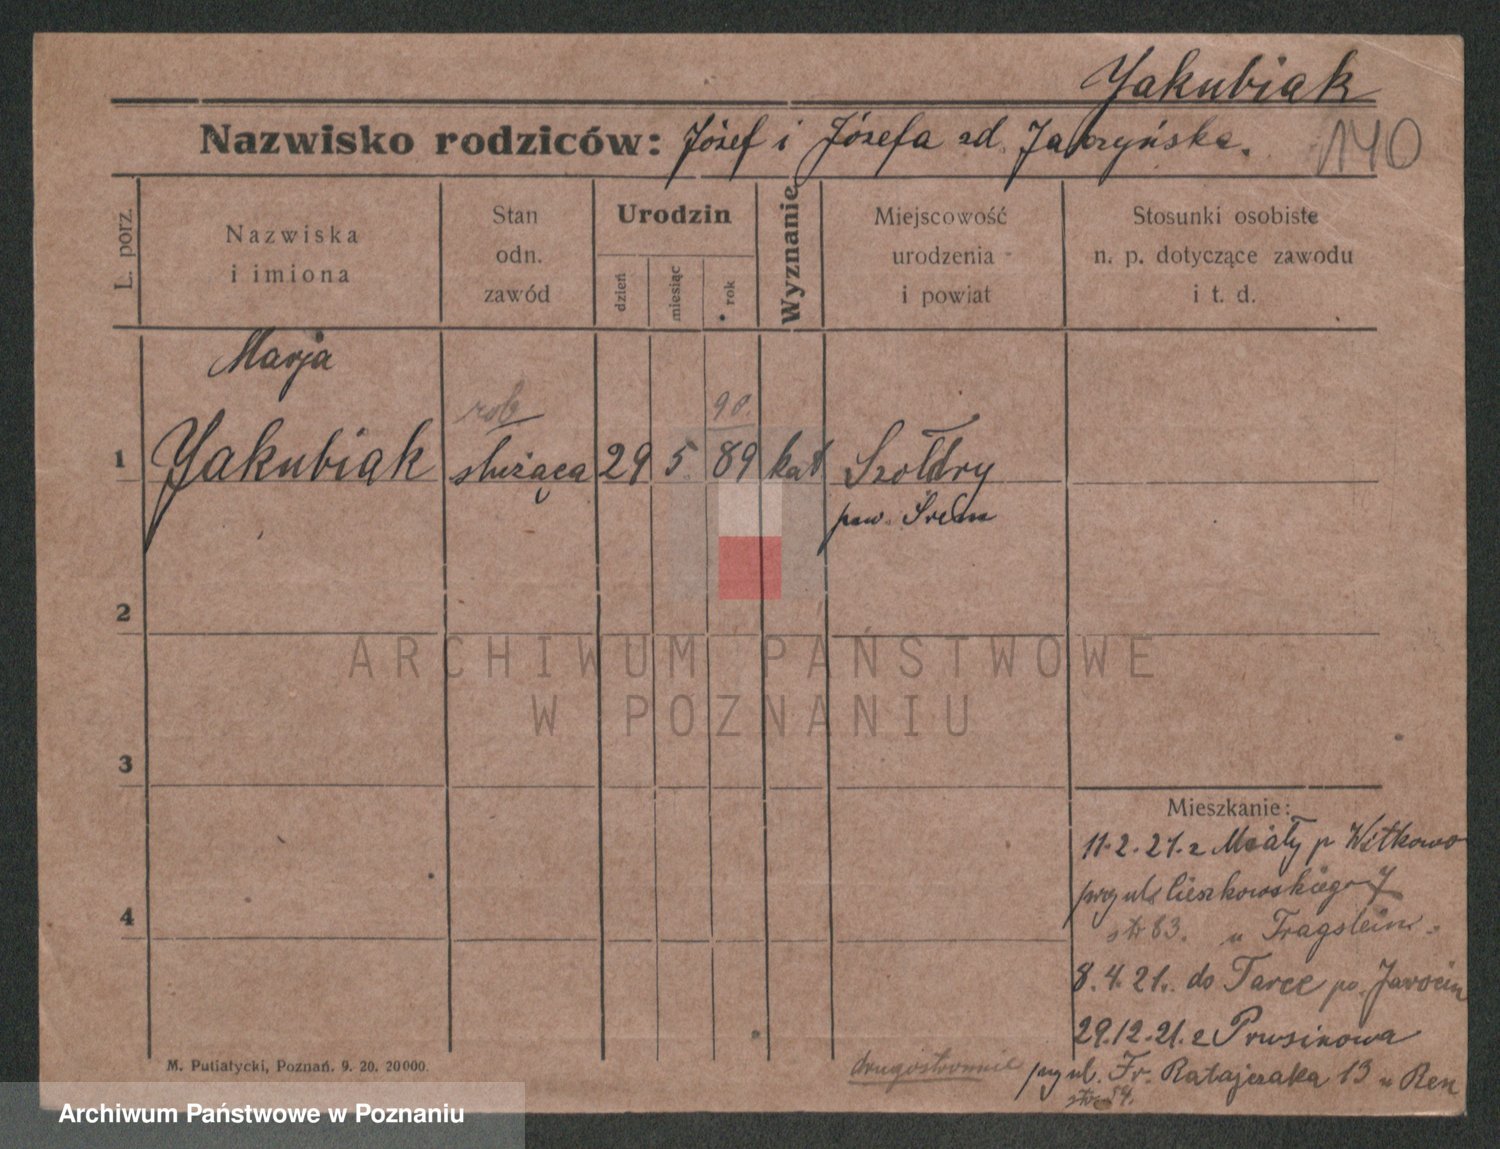 Yakubiak
Nazwisko rodziców: Józef i Józefa zd.
140
L. porz.
Nazwiska
i imiona
Stan
odn.
zawód
Urodzin
dzień
miesiąc
rok
Wyznanie
Miejscowość
urodzenia
i powiat
Stosunki osobiste
n. p. dotyczące zawodu
i t. d.
Marja
rob 90.
1 Yakubiak służąca 29 5. 89 kat Szołdry
pow. Śrem
2
ARCHIWUM PAŃSTWOWE
W POZNANIU
3
Mieszkanie:
11.2.21. z Miaty p Witkowo
przy ul. Cieszkowskiego 7
str 83. u Fragstein.
4
8.4.21. do Tarce po. Jarocin
29.12.21. z Prusinowa
drugostronnie przy ul. Fr. Ratajczaka 13 u Ren
M. Putiatycki, Poznań. 9. 20. 20000.
Archiwum Państwowe w Poznaniu